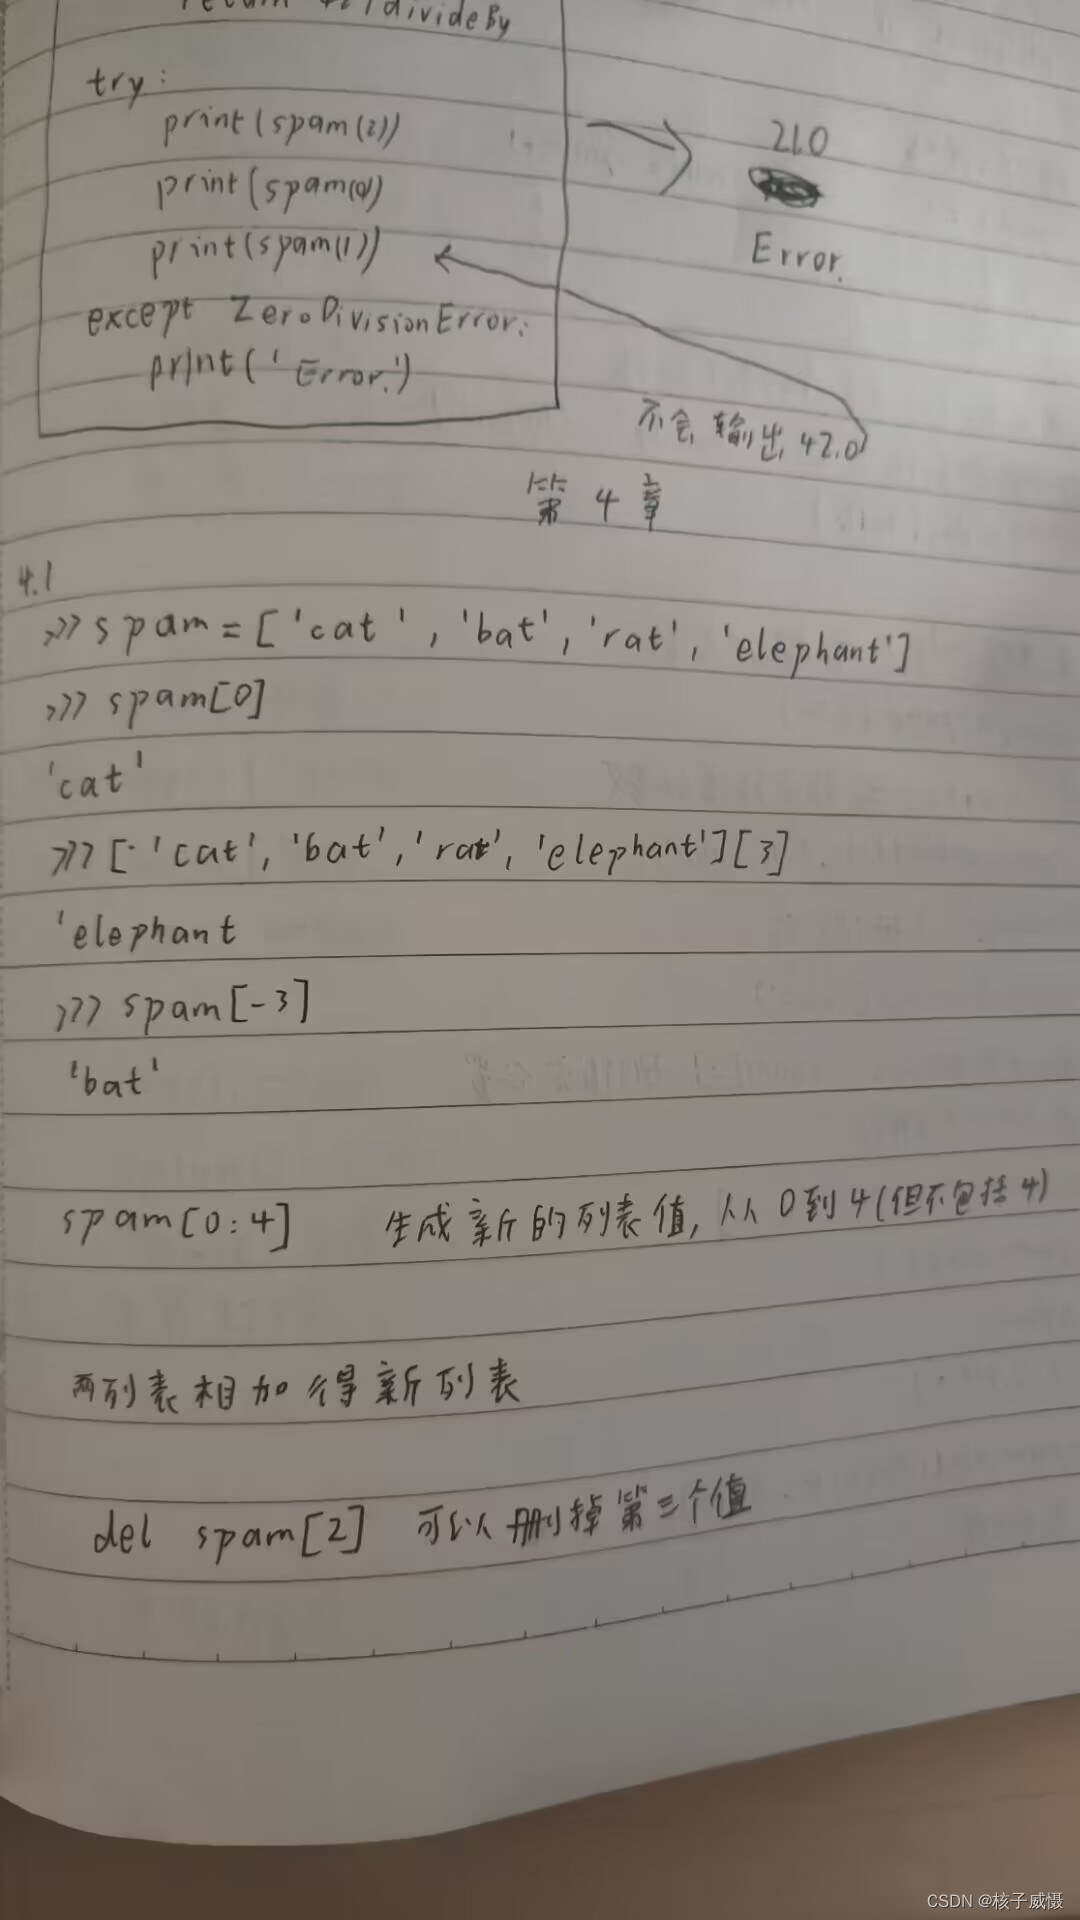 return 42/divideBy
try:
print(spam(2))
print(spam(0)
print(spam(1))
except ZeroDivisionError:
print('Error.')
21.0
Error.
不会输出42.0
第4章
4.1
>>> spam=['cat','bat','rat','elephant']
>>> spam[0]
'cat'
>>> ['cat','bat','rat','elephant'][3]
'elephant
>>> spam[-3]
'bat'
spam[0:4] 生成新的列表值,从0到4(但不包括4)
两列表相加得新列表
del spam[2] 可以删掉第三个值
CSDN @核子威慑